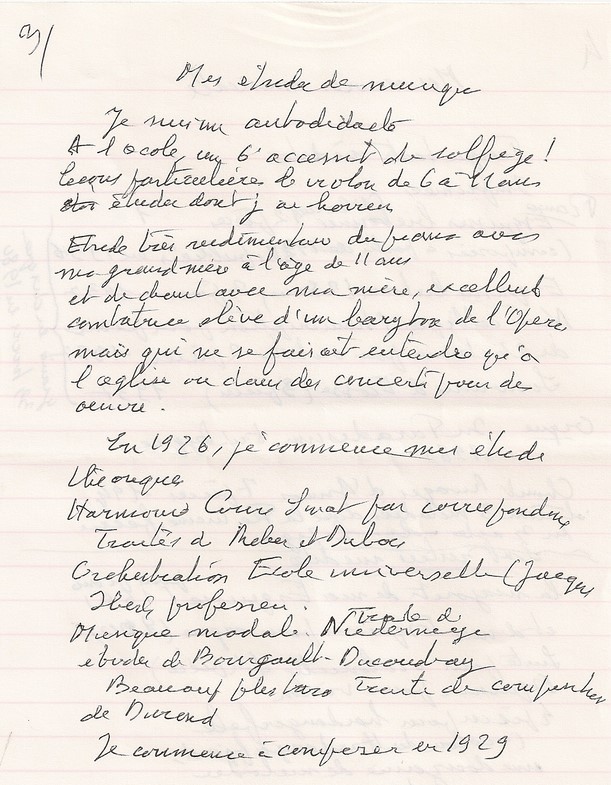 3/
Mes études de musique
Je suis un autodidacte
A l'école, un 6e accessit de solfège !
Leçons particulières de violon de 6 à 11 ans
études dont j'ai horreur
Etude très rudimentaire du piano avec
ma grand mère à l'âge de 11 ans
et de chant avec ma mère, excellente
cantatrice élève d'un baryton de l'Opéra
mais qui ne se faisait entendre qu'à
l'église ou dans des concerts pour des
oeuvre.
En 1926, je commence mes études
théoriques
Harmonie Cours Sinat par correspondance
Traités de Reber et Dubois
Orchestration Ecole universelle (Jacques
Ibert, professeur.
Musique modale. Traité de Niedermeyer
études de Bourgault-Ducoudray
Beaucoup plus tard Traité de composition
de Durand
Je commence à composer en 1929